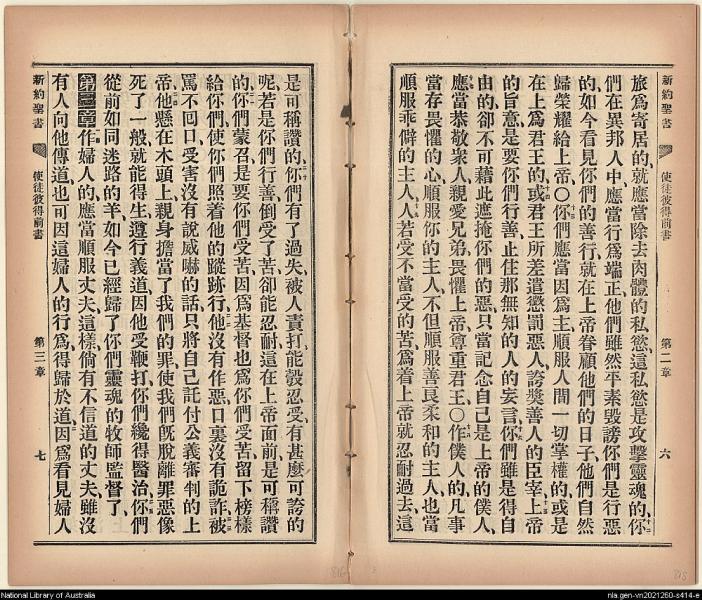 新約聖書 使徒彼得前書 第二章 六
旅爲寄居的、就應當除去肉體的私慾、這私慾是攻擊靈魂的、你
們在異邦人中、應當行爲端正、他們雖然平素毀謗你們是行惡
的、如今看見你們的善行、就在上帝眷顧他們的日子、他們自然
歸榮耀給上帝○你們應當因爲主順服人間一切掌權的、或是
在上爲君王的、或君王所差遣懲罰惡人、誇獎善人的臣宰、上帝
的旨意是要你們行善、止住那無知的人的妄言、你們雖是得自
由的、卻不可藉此遮掩你們的惡、只當記念自己是上帝的僕人、
應當恭敬衆人、親愛兄弟、畏懼上帝、尊重君王、○作僕人的、凡事
當存畏懼的心、順服你的主人、不但順服善良柔和的主人、也當
順服乖僻的主人、人若受不當受的苦、爲着上帝就忍耐過去、這
是可稱讚的、你們有了過失、被人責打、能彀忍受、有甚麼可誇的
呢、若是你們行善、倒受了苦、卻能忍耐、這在上帝面前是可稱讚
的、你們蒙召是要你們受苦、因爲基督也爲你們受苦、留下榜樣
給你們、使你們照着他的蹤跡行、他沒有作惡、口裏沒有詭詐、被
罵不回口、受害沒有說威嚇的話、只將自己託付公義審判的上
帝、他懸在木頭上、親身擔當了我們的罪、使我們既脫離罪惡、像
死了一般、就能得生、遵行義道、因他受鞭打、你們纔得醫治、你們
從前如同迷路的羊、如今已經歸了你們靈魂的牧師監督了、
第三章作婦人的、應當順服丈夫、這樣倘有不信道的丈夫、雖沒
有人向他傳道、也可因這婦人的行爲得歸於道、因爲看見婦人
新約聖書 使徒彼得前書 第三章 七
National Library of Australia
nla.gen-vn2021260-s414-e